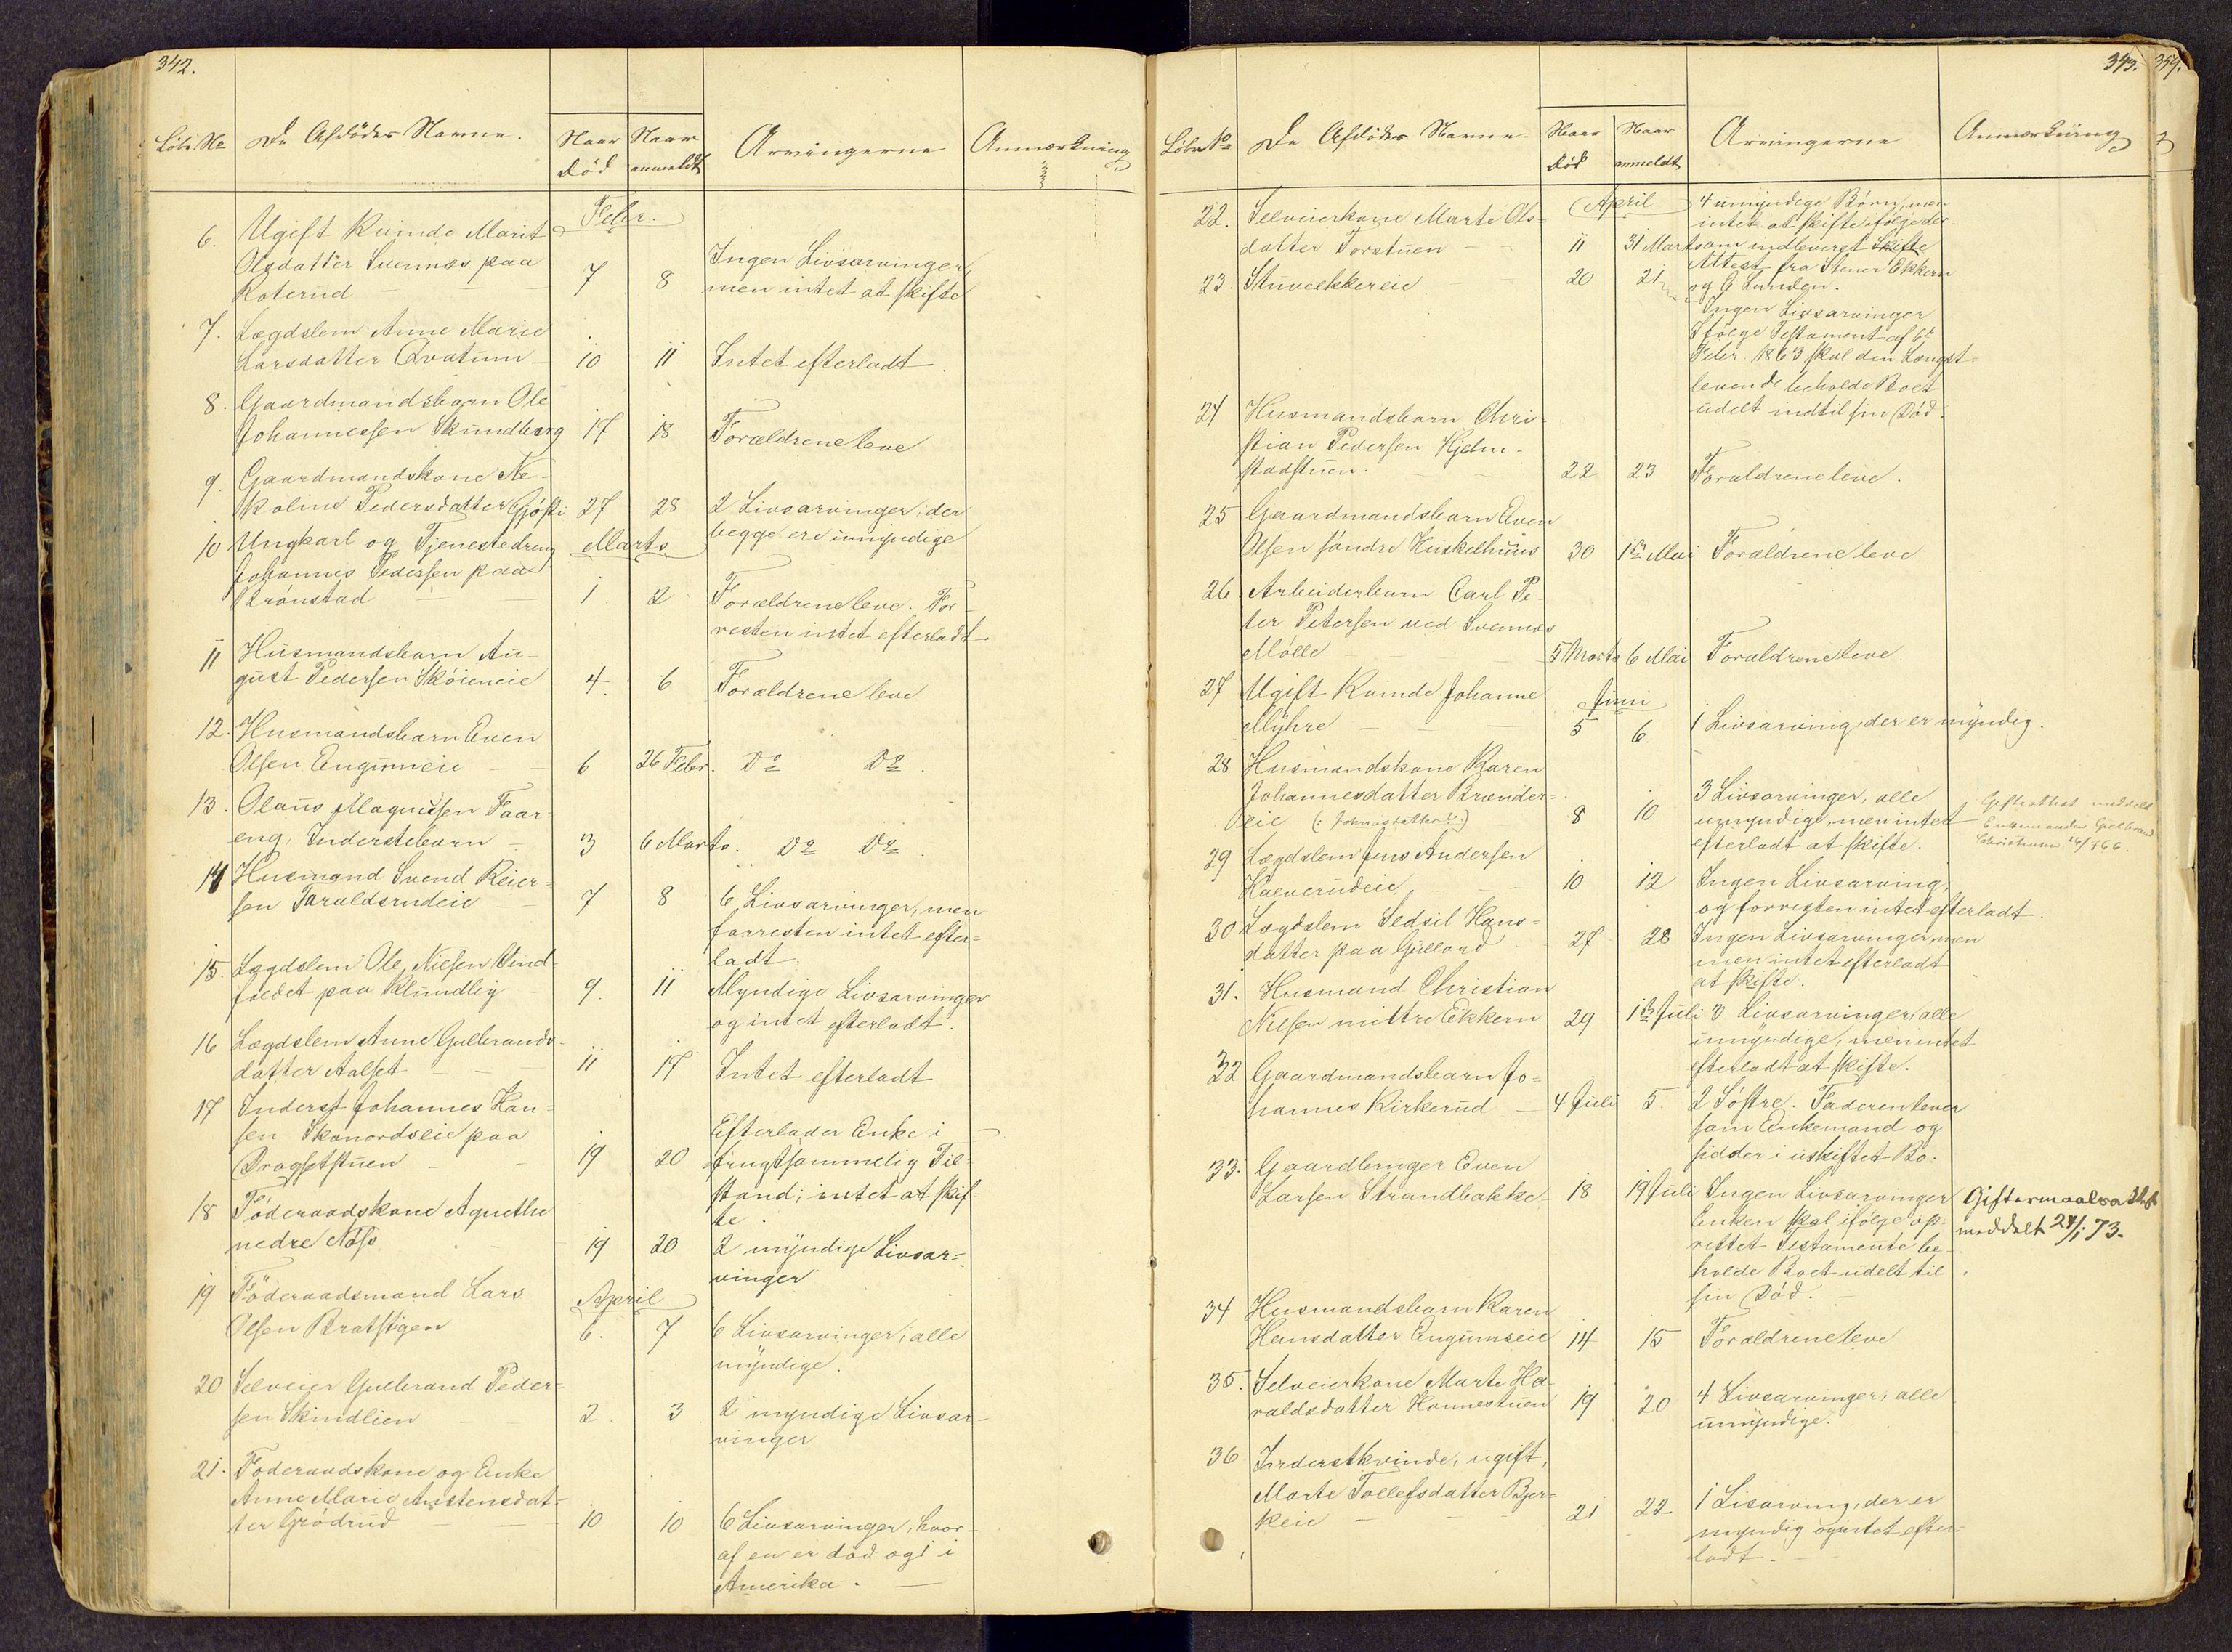 342.
Løb. No De Afdødes Navne. Naar død Naar anmeldt Arvingerne Anmærkning
Febr.
6. Ugift Kvinde Marit
Olsdatter Svennes paa
Koterud 7 8 Ingen Livsarvinger,
men intet at skifte
7. Lægdslem Anne Marie
Larsdatter Qvatum 10 11 Intet efterladt.
8. Gaardmandsbarn Ole
Johannessen Skundberg 17 18 Forældrene leve
9. Gaardmandskone Ne-
koline Pedersdatter 27 28 2 Livsarvinger, der
begge ere umyndige
Marts
10 Ungkarl og Tjenestedreng
Johannes Pedersen paa
Brønstad 1 2 Forældrene leve. For-
resten intet efterladt
11 Husmandsbarn Au-
gust Pedersen Skøieneie 4 6 Forældrene leve
12. Husmandsbarn Even
Olsen Engumeie 6 26 Febr. Do Do.
13. Olaus Magnussen Faar-
eng, Inderstebarn 3 6 Marts. Do Do.
14 Husmand Svend Reier-
sen Taraldsrudeie 7 8 6 Livsarvinger, men
forresten intet efter-
ladt.
15. Lægdslem Ole Nielsen Vind-
foedet paa Klundlig 9. 11 Myndige Livsarvinger
og intet efterladt.
16 Lægdslem Anne Gulbrands-
datter Aalset 11 17 Intet efterladt
17 Inderst Johannes Han-
sen Skonordseie paa
Dragsetstuen 19 20 Efterlader Enke i
frugtsommelig Til-
stand; intet at skif-
te.
18 Föderaadskone Agnethe
nedre Næss 19 20 2 myndige Livsar-
vinger
April
19 Föderaadsmand Lars
Olsen Bratstigen 6. 7 6 Livsarvinger, alle
myndige.
20 Selveier Gulbrand Peder-
sen Skindlien 2 3 2 myndige Livsar-
vinger
21. Föderaadskone og Enke
Anne Marie Austensdat-
ter Grödrud 10 10 6 Livsarvinger, hvor-
af en er död og 1 i
Amerika.
343.
Løbe No De Afdødes Navne. Naar død Naar anmeldt Arvingerne Anmærkning
April
22. Selveierkone Marte Ols-
datter Torstuen 11 31 Marts 4 umyndige Børn, men
intet at skifte ifølge der-
om indleveret Skifte
Attest fra Stener Ekkern
og G Lunden.
23. Stuveekkereie 20 21 Ingen Livsarvinger
Ifølge Testament af 6te
Febr. 1863 skal den Længst-
levende beholde Boet
udelt indtil sin Død.
24 Husmandsbarn Chri-
stian Pedersen Hjelm-
stadstuen. 22 23 Forældrene leve.
25 Gaardmandsbarn Even
Olsen søndre Huskelhuus 30 1ste Mai Forældrene leve
26. Arbeiderbarn Carl Pe-
ter Petersen ved Svennes
Mølle 5 Marts 6 Mai Forældrene leve.
Juni
27 Ugift Kvinde Johanne
Myhre 5 6 1 Livsarving, der er myndig.
28 Husmandskone Karen
Johannesdatter Brænder-
eie (: Johnsdatter :) 8 10 3 Livsarvinger, alle
umyndige, men intet
efterladt at skifte.
Gifteattest meddelt
Enkemanden Gulbrand
29 Lægdslem Jens Andersen
Halverudeie 10 12 Ingen Livsarving,
og forresten intet efterladt.
30 Lægdslem Sedsil Hans-
datter paa Gullord 27 28 Ingen Livsarvinger, men
men intet efterladt
at skifte.
31. Husmand Christian
Nielsen mittre Ekkern 29 1ste Juli 3 Livsarvinger, alle
umyndige, men intet
efterladt at skifte.
32 Gaardmandsbarn Jo-
hannes Kirkerud 4 Juli 5. 2 Søstre. Faderen lever
som Enkemand og
sidder i uskiftet Bo.
33. Gaardbruger Even
Larsen Strandbakke 18 19 Juli Ingen Livsarvinger
Enken skal ifølge op-
rettet Testamente be-
holde Boet udelt til
sin Død.
Giftermaalsatt.
meddelt 24/1 73.
34 Husmandsbarn Karen
Hansdatter Engumseie 14 15 Forældrene leve
35. Selveierkone Marte Ha-
raldsdatter Honnestuen 19 20 4 Livsarvinger, alle
umyndige.
36 Inderstkvinde, ugift,
Marte Tollefsdatter Bjer-
keie 21 22 1 Lisarving, der er
myndig og intet efter-
ladt.